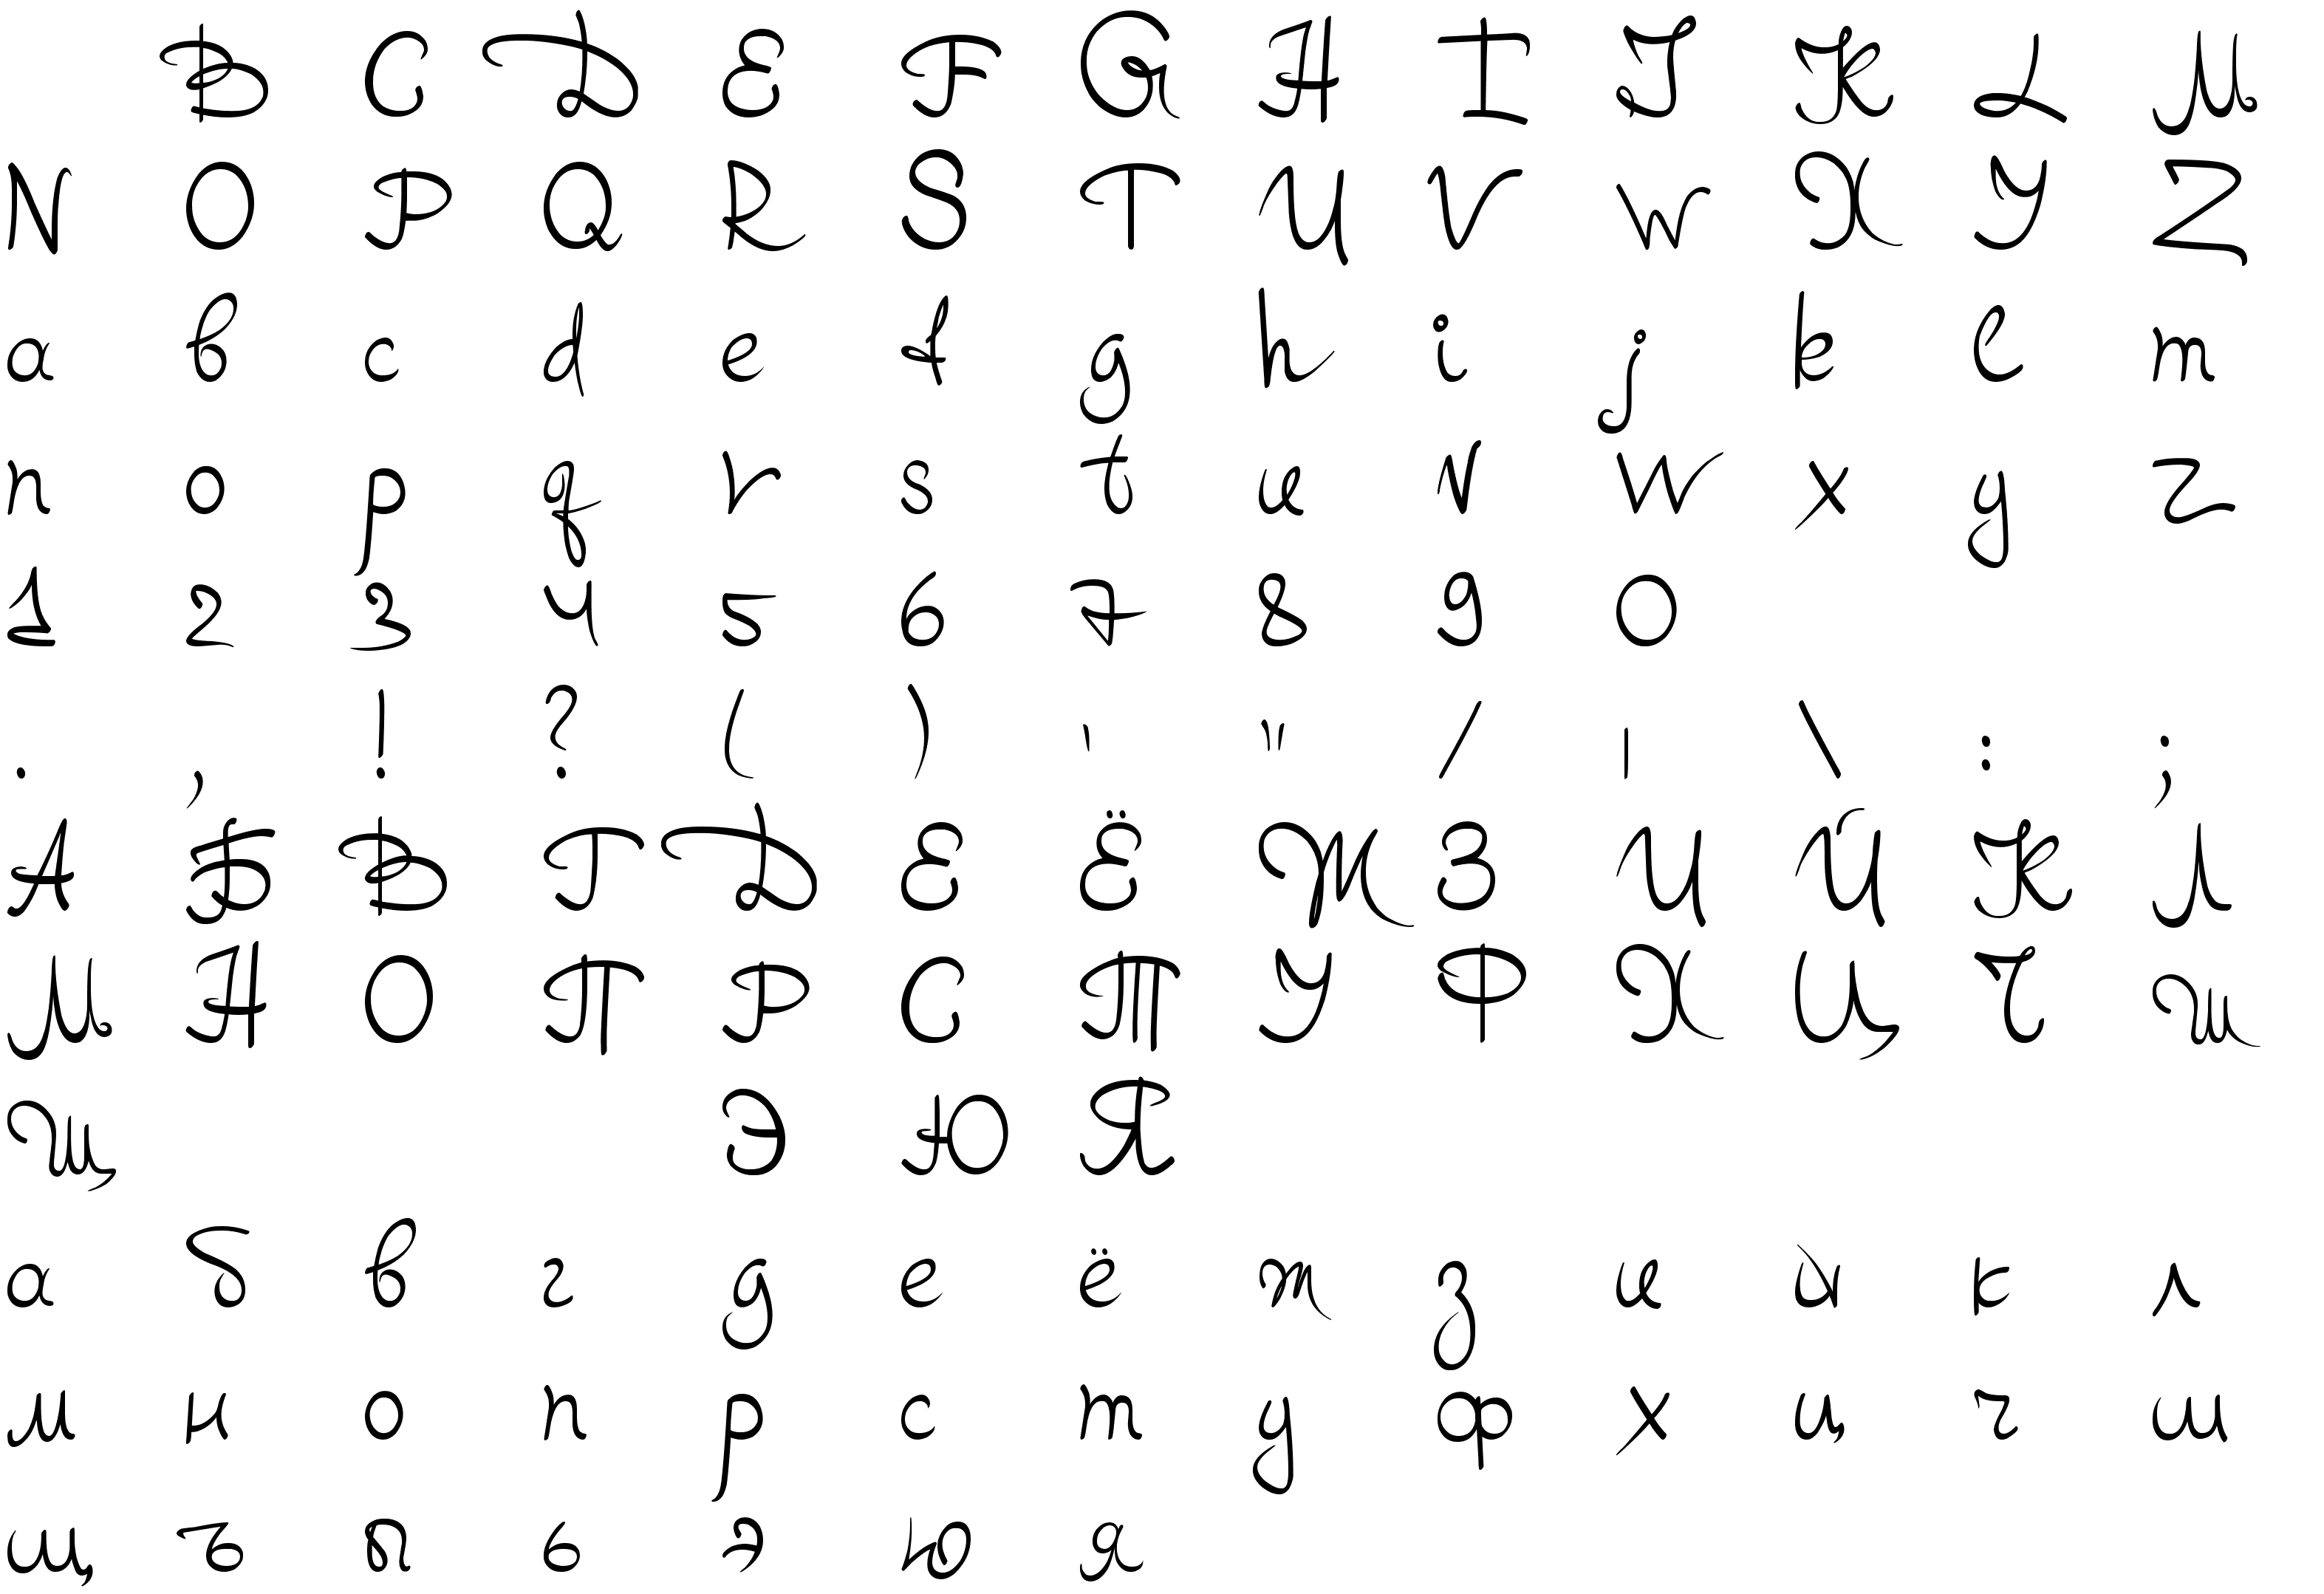 B C D E F G H I J K L M
N O P Q R S T U V W X Y Z
a b c d e f g h i j k l m
n o p q r s t u v w x y z
1 2 3 4 5 6 7 8 9 0
. , ! ? ( ) ' " / | \ : ;
А Б В Г Д Е Ё Ж З И Й К Л
М Н О П Р С Т У Ф Х Ц Ч Ш
Щ Э Ю Я
а б в г д е ё ж з и й к л
м н о п р с т у ф х ц ч ш
щ ъ ы ь э ю я